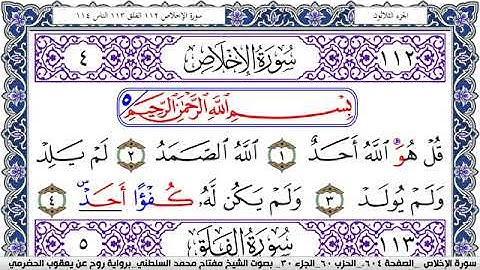 الجزء الثلاثون
سورة الإخلاص ١١٢ الفلق ١١٣ الناس ١١٤
١١٢ سُورَةُ الإِخْلَاصِ ٤
بِسْمِ اللَّهِ الرَّحْمَٰنِ الرَّحِيمِ ٥
قُلْ هُوَ اللَّهُ أَحَدٌ ١ اللَّهُ الصَّمَدُ ٢ لَمْ يَلِدْ
وَلَمْ يُولَدْ ٣ وَلَمْ يَكُن لَّهُ كُفْؤًا أَحَدٌ ٤
١١٣ سُورَةُ الْفَلَقِ ٥
سورة الإخلاص _الصفحة ٦٠٤_ الحزب ٦٠_الجزء ٣٠_ بصوت الشيخ مفتاح محمد السلطني_ برواية روح عن يعقوب الحضرمي